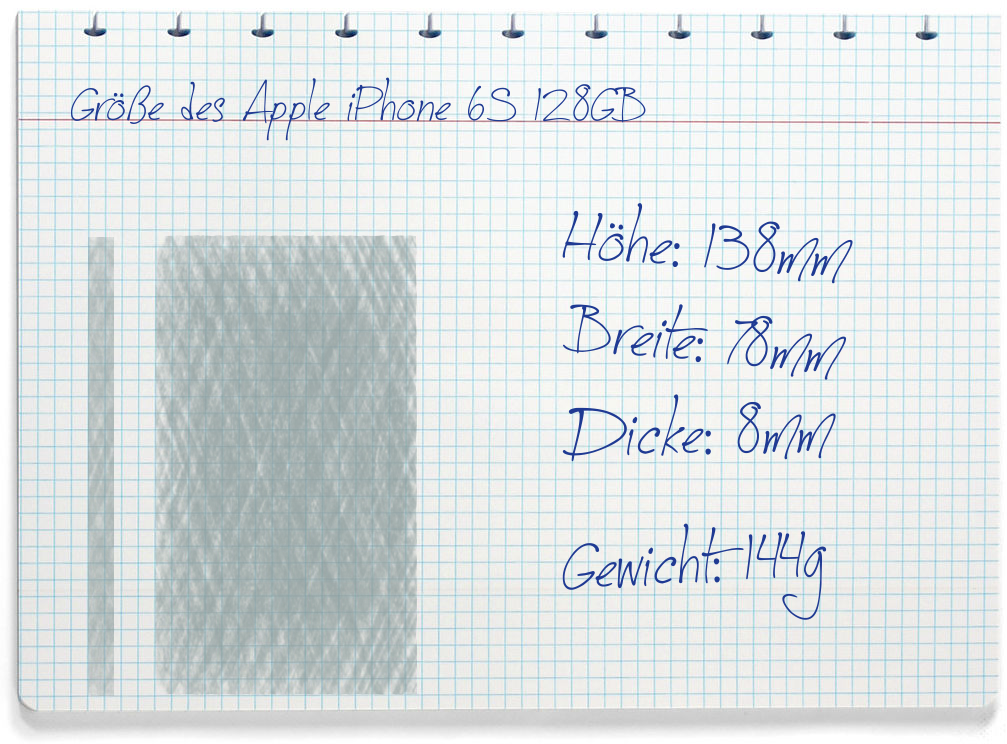 Größe des Apple iPhone 6S 128GB
Höhe: 138mm
Breite: 78mm
Dicke: 8mm
Gewicht: 144g